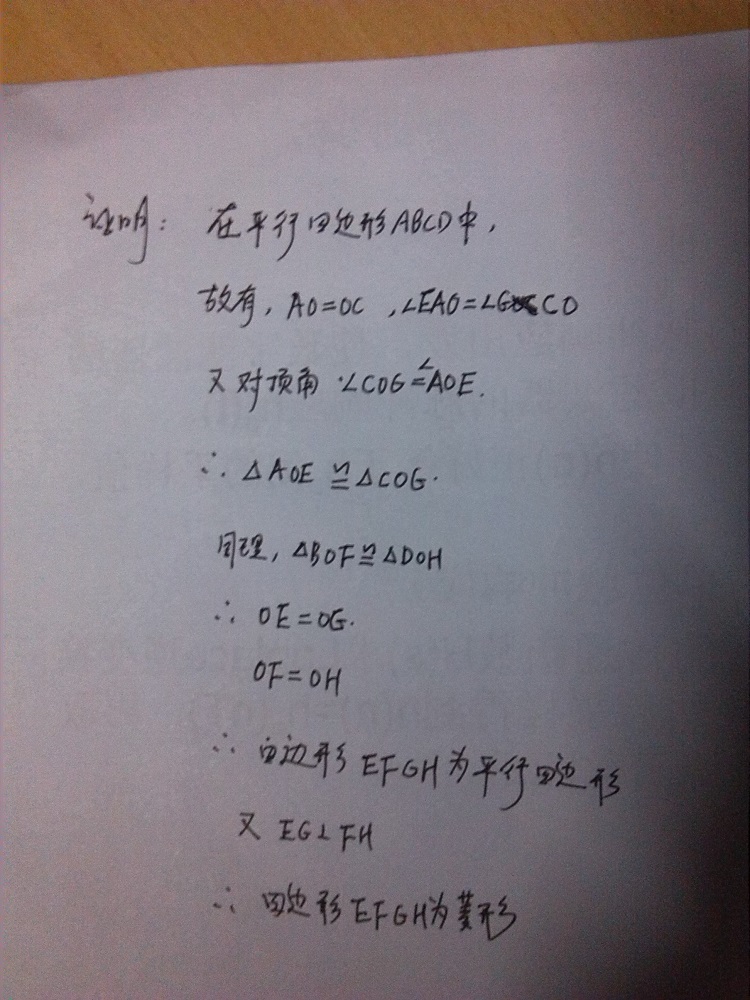 证明: 在平行四边形ABCD中,
故有, AO=OC ,∠EAO=∠GCO
又对顶角 ∠COG=∠AOE.
∴ △AOE≌△COG.
同理, △BOF≌△DOH
∴ OE=OG.
OF=OH
∴ 四边形EFGH为平行四边形
又 EG⊥FH
∴ 四边形EFGH为菱形